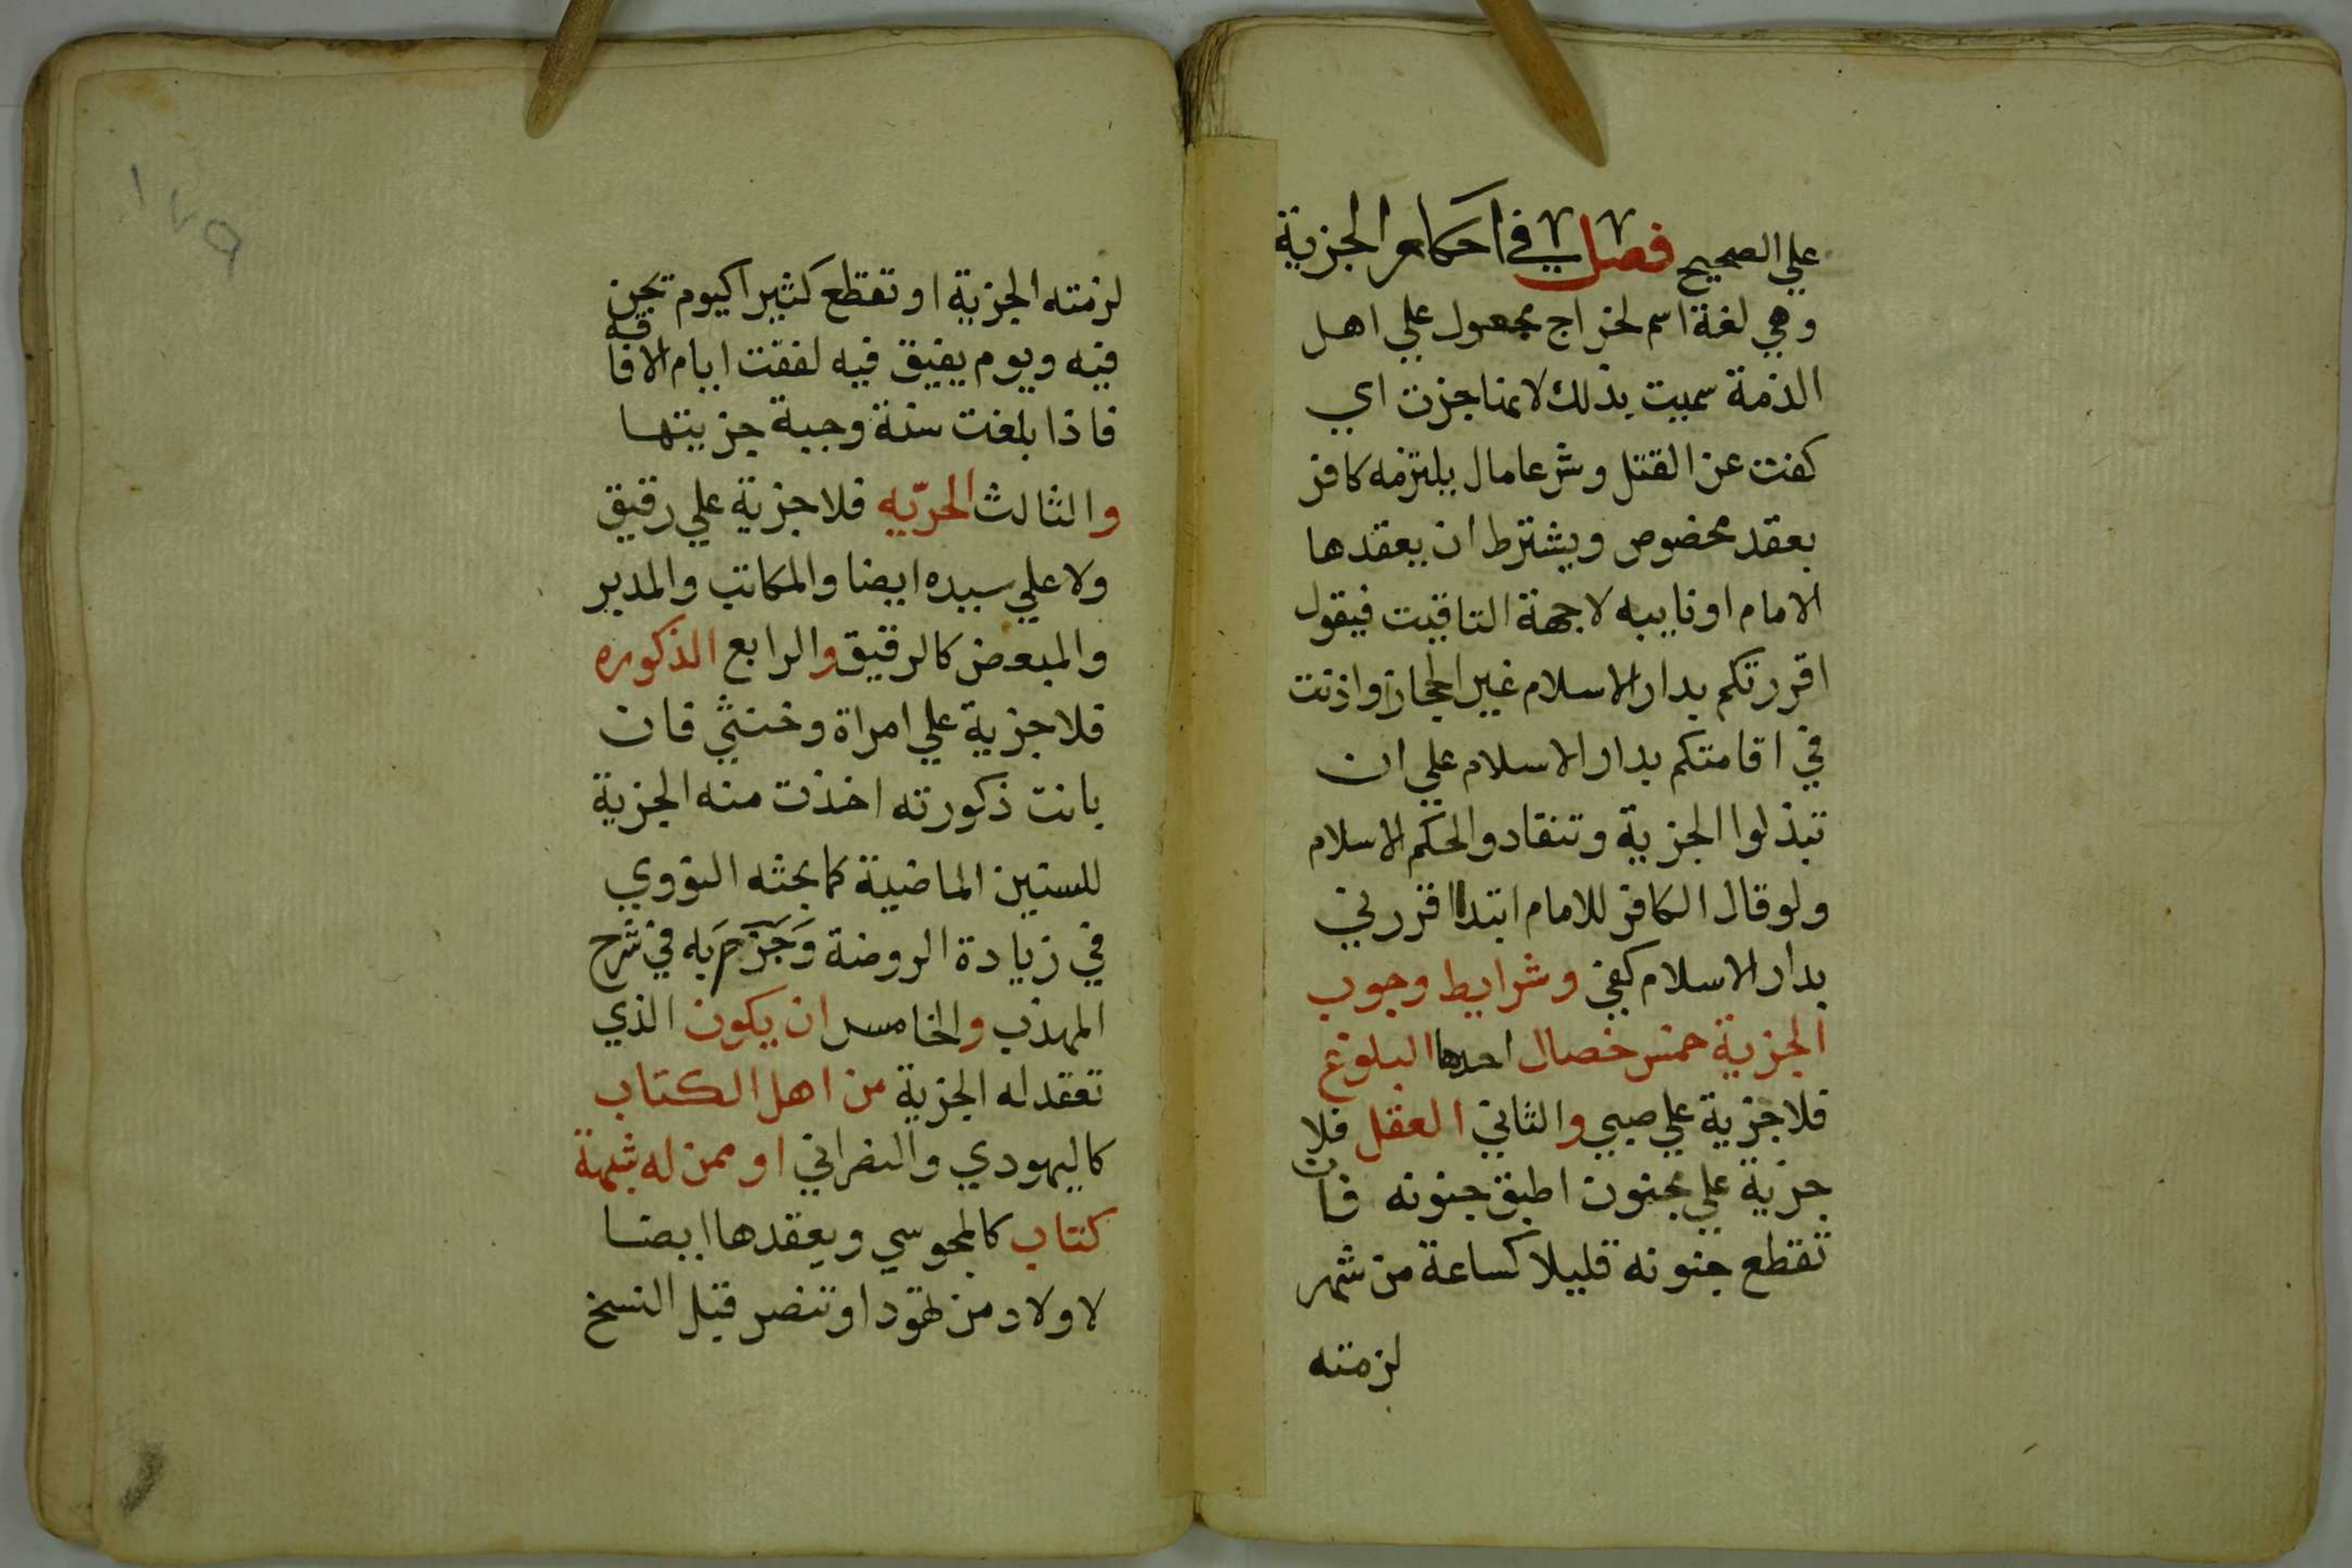 علي الصحيح فصل في احكام الجزية
وهي لغة اسم لخراج مجعول علي اهل
الذمة سميت بذلك لانها جزت اي
كفت عن القتل وشرعا مال يلتزمه كافر
بعقد مخصوص ويشترط ان يعقدها
الامام او نايبه لا جهة التاقيت فيقول
اقررتكم بدار الاسلام غير الحجاز واذنت
في اقامتكم بدار الاسلام علي ان
تبذلوا الجزية وتنقادوا لحكم الاسلام
ولو قال الكافر للامام ابتدا اقررني
بدار الاسلام كفي وشرايط وجوب
الجزية خمس خصال احدها البلوغ
فلا جزية علي صبي والثاني العقل فلا
جزية علي مجنون اطبق جنونه فان
تقطع جنونه قليلا كساعة من شهر
لزمته
١٧٩
لزمته الجزية او تقطع كثيرا كيوم يجن
فيه ويوم يفيق فيه لفقت ايام الافاقه
فاذا بلغت سنة وجبة جزيتها
والثالث الحريه فلا جزية علي رقيق
ولا علي سيده ايضا والمكاتب والمدبر
والمبعض كالرقيق والرابع الذكوره
فلا جزية علي امراة وخنثي فان
بانت ذكورته اخذت منه الجزية
للسنين الماضية كما بحثه النووي
في زيادة الروضة وَجَزَمَ به في شرح
المهذب والخامس ان يكون الذي
تعقد له الجزية من اهل الكتاب
كاليهودي والنصراني او ممن له شبهة
كتاب كالمجوسي ويعقدها ايضا
لاولاد من تهود او تنصر قبل النسخ